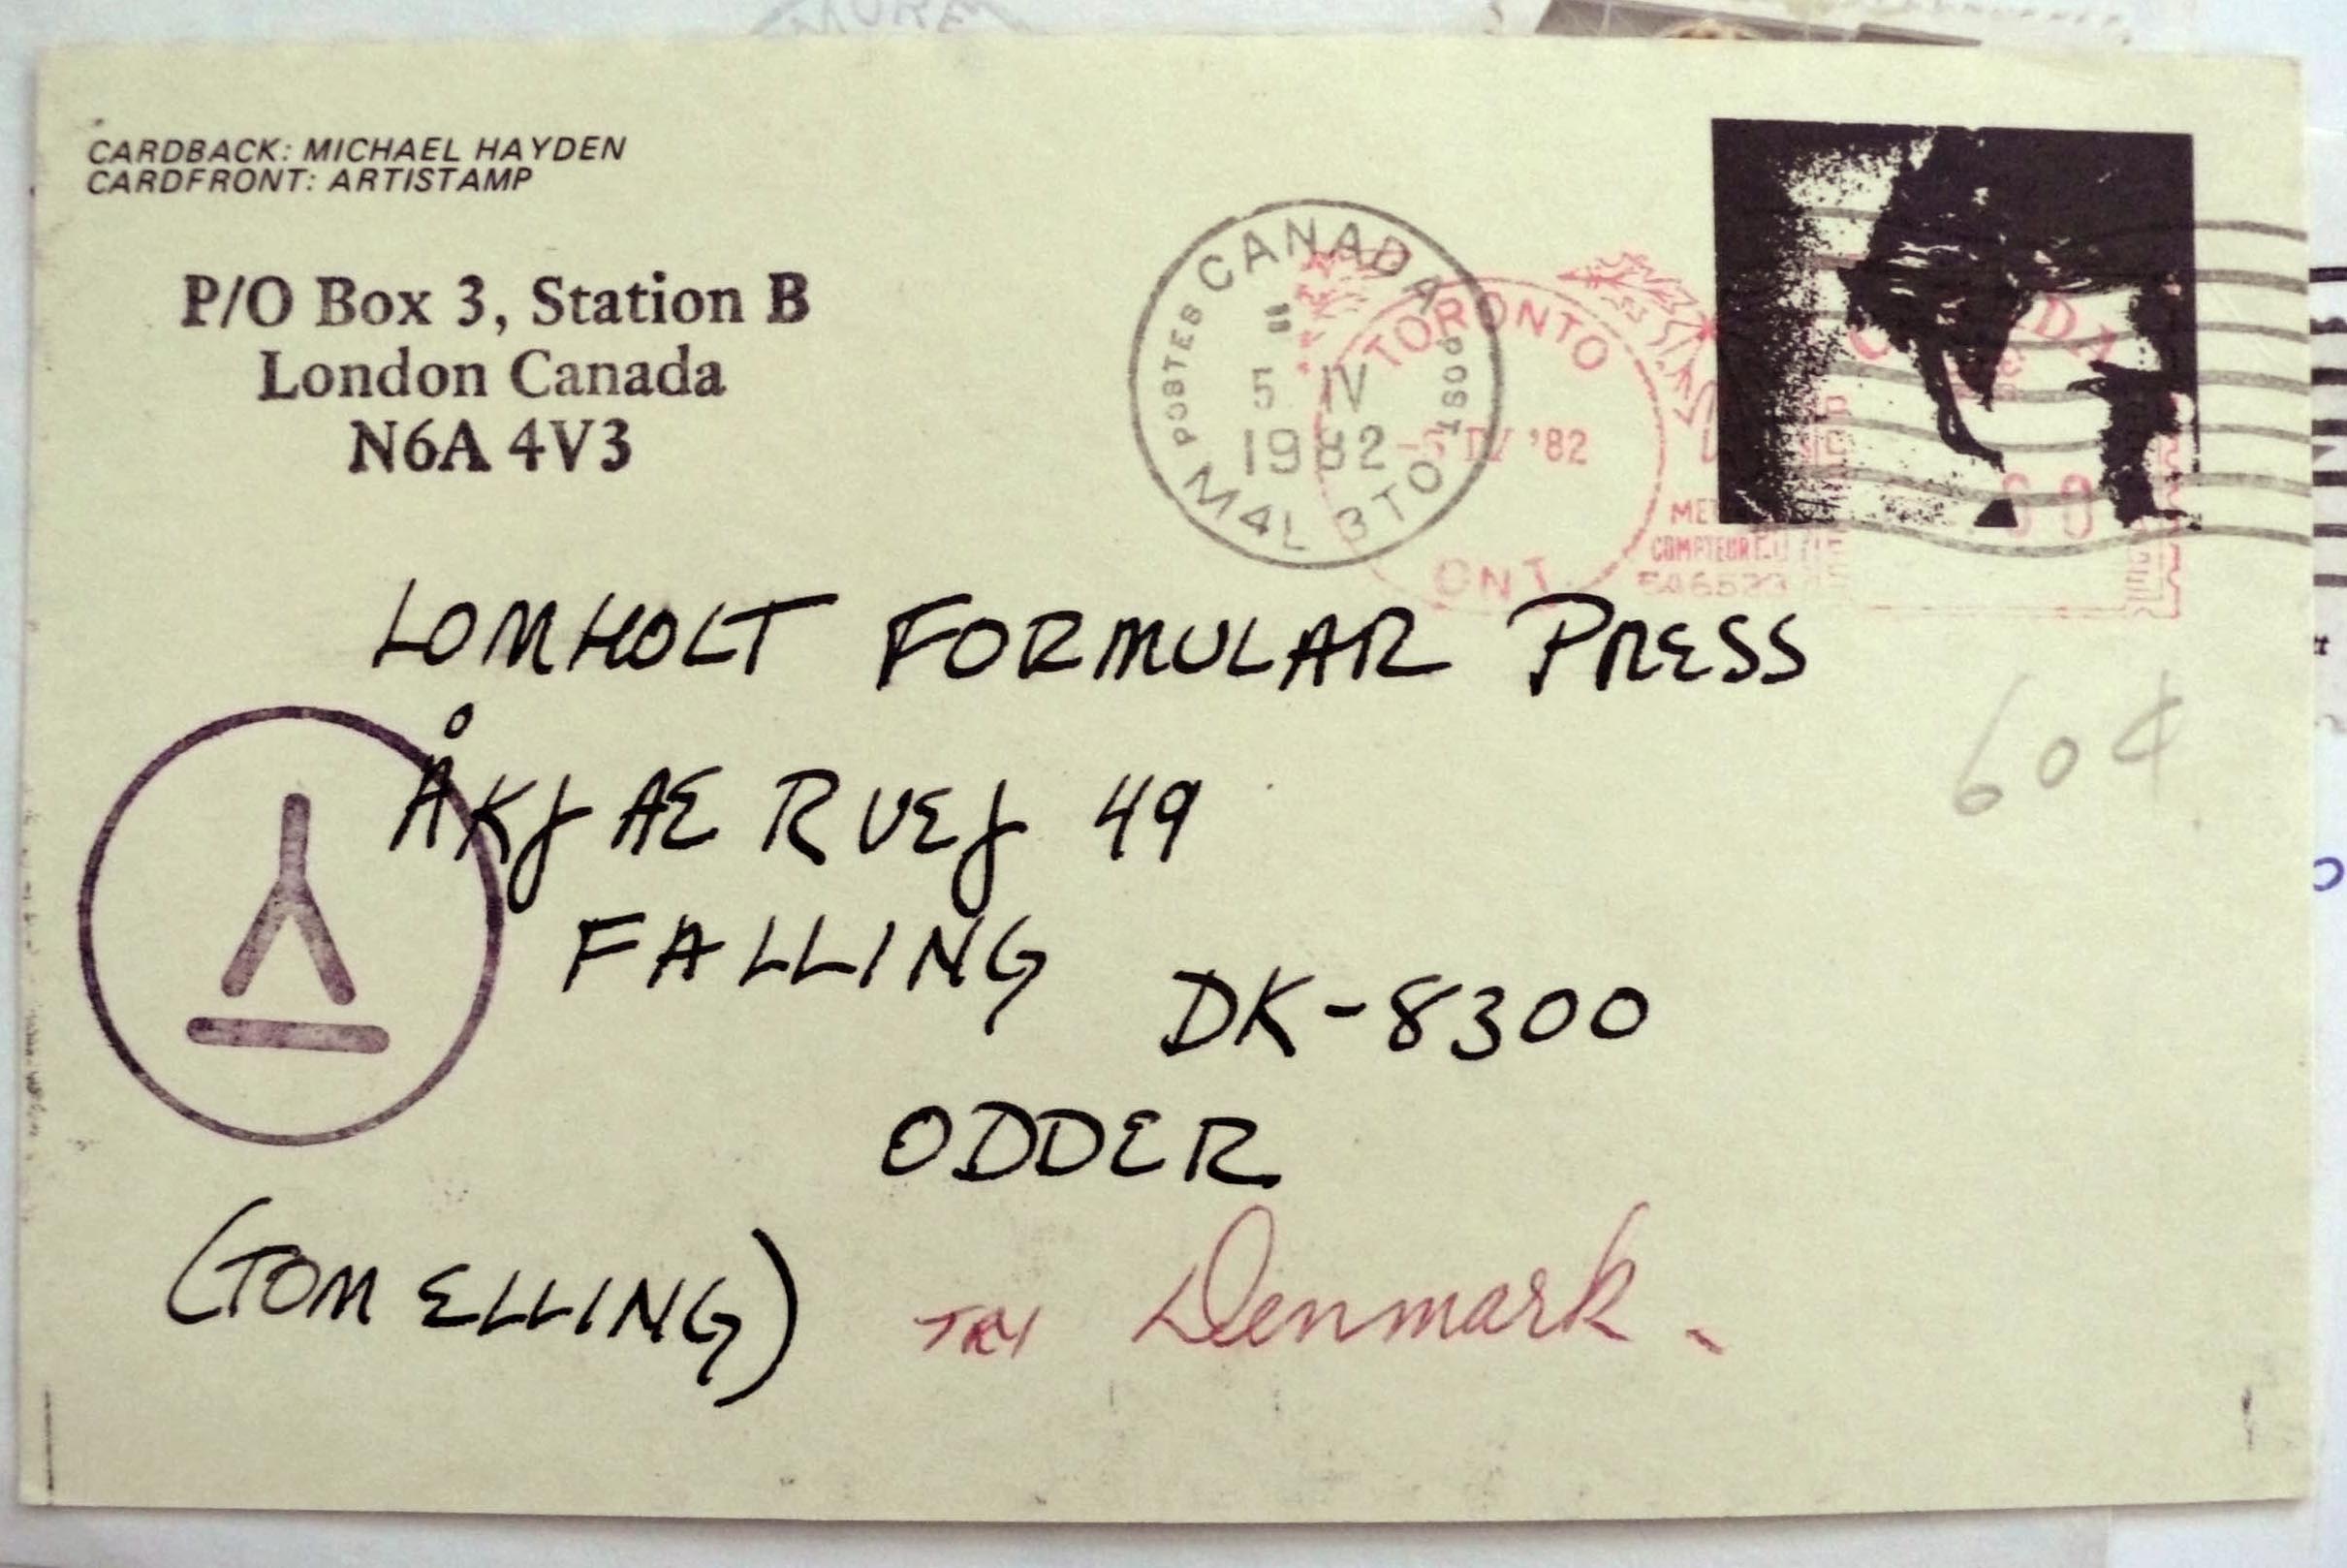 CARDBACK: MICHAEL HAYDEN
CARDFRONT: ARTISTAMP
P/O Box 3, Station B
London Canada
N6A 4V3
POSTES CANADA POST
5 IV
1982
M4L 3T0
TORONTO
-5 IV '82
ONT.
COMPTEUR
60
LOMHOLT FORMULAR PRESS
60¢
ÅKJAERVEJ 49
FALLING
DK-8300
ODDER
(TOM ELLING)
Denmark.